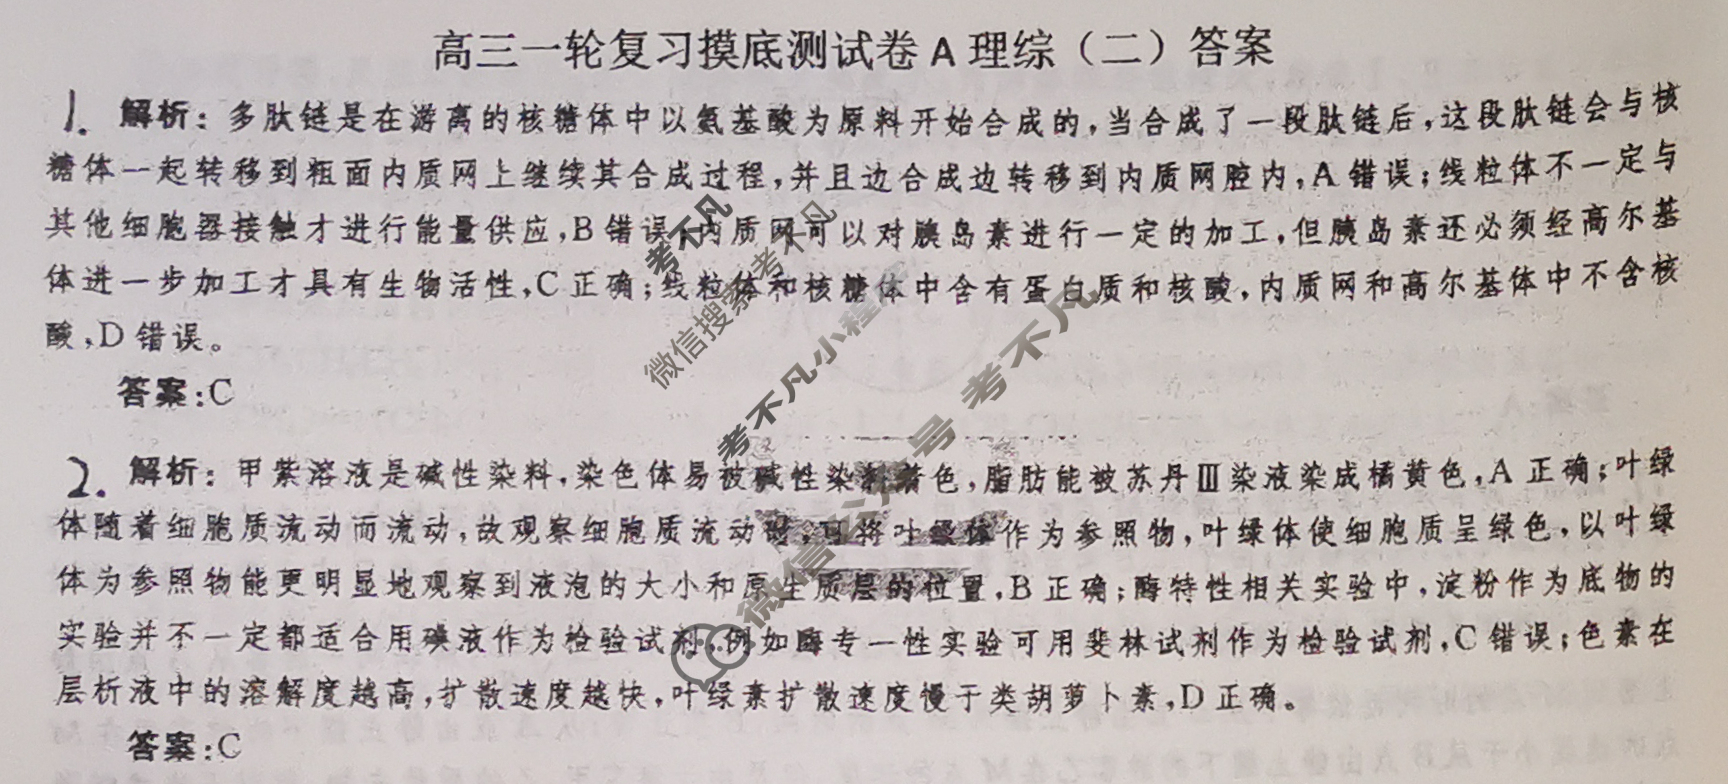 高三一轮复习摸底测试卷 A 理综（二）答案
1. 解析：多肽链是在游离的核糖体中以氨基酸为原料开始合成的，当合成了一段肽链后，这段肽链会与核
糖体一起转移到粗面内质网上继续其合成过程，并且边合成边转移到内质网腔内，A 错误；线粒体不一定与
其他细胞器接触才进行能量供应，B 错误；内质网可以对胰岛素进行一定的加工，但胰岛素还必须经高尔基
体进一步加工才具有生物活性，C 正确；线粒体和核糖体中含有蛋白质和核酸，内质网和高尔基体中不含核
酸，D 错误。
答案：C
2. 解析：甲紫溶液是碱性染料，染色体易被碱性染料着色，脂肪能被苏丹Ⅲ染液染成橘黄色，A 正确；叶绿
体随着细胞质流动而流动，故观察细胞质流动时，可将叶绿体作为参照物，叶绿体使细胞质呈绿色，以叶绿
体为参照物能更明显地观察到液泡的大小和原生质层的位置，B 正确；酶特性相关实验中，淀粉作为底物的
实验并不一定都适合用碘液作为检验试剂，例如酶专一性实验可用斐林试剂作为检验试剂，C 错误；色素在
层析液中的溶解度越高，扩散速度越快，叶绿素扩散速度慢于类胡萝卜素，D 正确。
答案：C
考不凡
微信搜索考不凡
考不凡小程序
微信公众号 考不凡